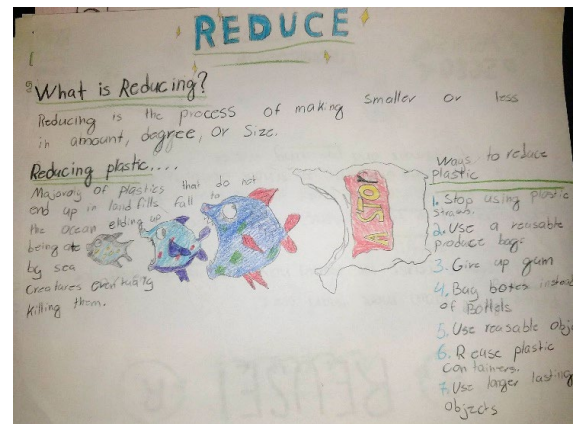 REDUCE
What is Reducing?
Reducing is the process of making smaller or less
in amount, degree, Or Size.
Reducing plastic....
Majoraty of plastics that do not
end up in land fills fall to
the ocean ending up
being ate
by sea
Creatures eventually
killing them.
Ways to reduce
plastic
1. Stop using plastic
straws.
2. Use a reusable
produce bags
3. Give up gum
4. Buy boxes instead
of Bottels
5. Use reasable obj
6. Reuse plastic
containers.
7. Use larger lasting
objects